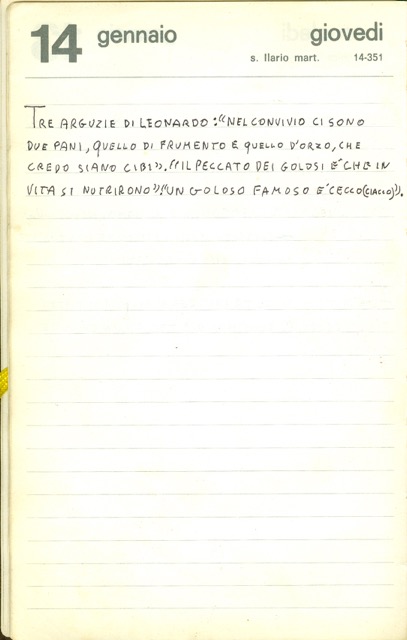 14 gennaio giovedi
s. Ilario mart. 14-351
TRE ARGUZIE DI LEONARDO: "NEL CONVIVIO CI SONO
DUE PANI, QUELLO DI FRUMENTO E QUELLO D'ORZO, CHE
CREDO SIANO CIBI". "IL PECCATO DEI GOLOSI E' CHE IN
VITA SI NUTRIRONO". "UN GOLOSO FAMOSO E' CECCO (CIACCO)".